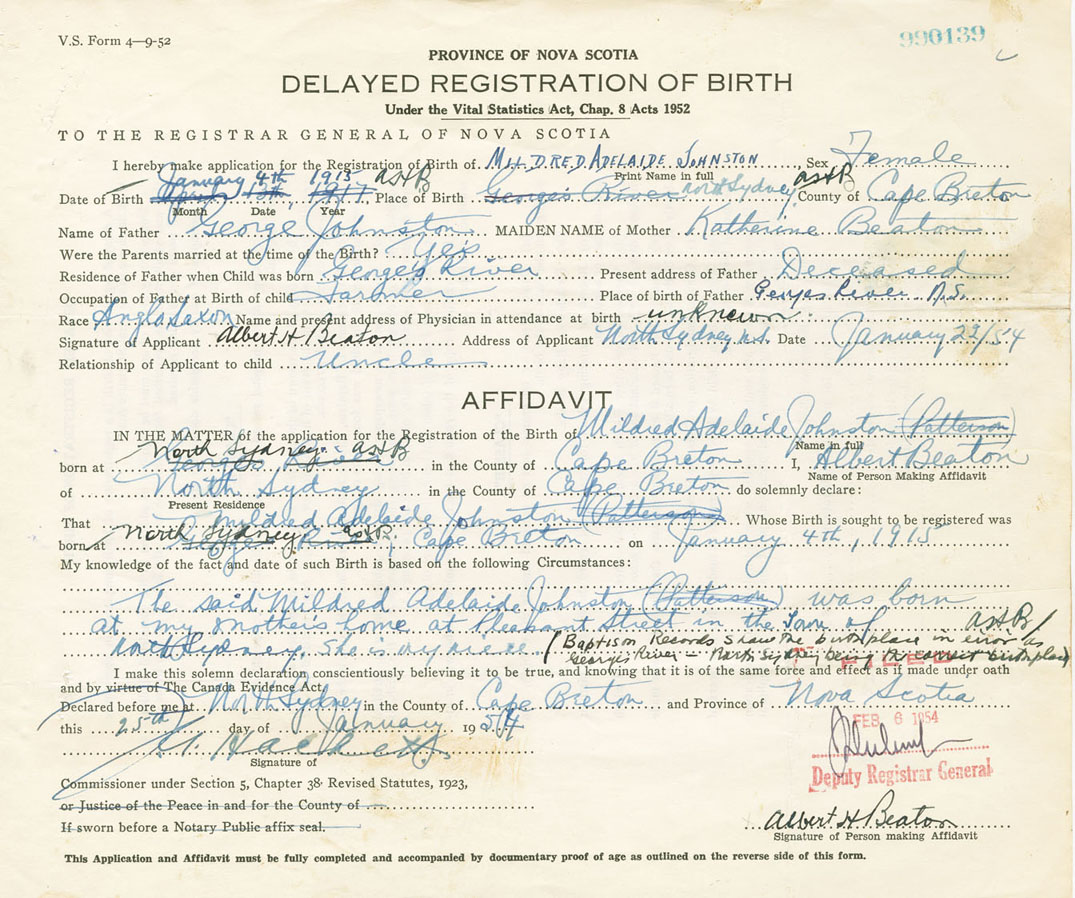 V.S. Form 4—9-52
990139
PROVINCE OF NOVA SCOTIA
DELAYED REGISTRATION OF BIRTH
Under the Vital Statistics Act, Chap. 8 Acts 1952
TO THE REGISTRAR GENERAL OF NOVA SCOTIA
I hereby make application for the Registration of Birth of MILDRED ADELAIDE JOHNSTON, Sex Female
Print Name in full
January 4th 1915 AHB
Date of Birth 1917, Place of Birth Georges River North Sydney AHB County of Cape Breton
Month Date Year
Name of Father George Johnston MAIDEN NAME of Mother Katherine Beaton
Were the Parents married at the time of the Birth? Yes
Residence of Father when Child was born Georges River Present address of Father Deceased
Occupation of Father at Birth of child Farmer Place of birth of Father Georges River N.S.
Race Anglo Saxon Name and present address of Physician in attendance at birth unknown
Signature of Applicant Albert H Beaton Address of Applicant North Sydney N.S. Date January 22/54
Relationship of Applicant to child Uncle
AFFIDAVIT
IN THE MATTER of the application for the Registration of the Birth of Mildred Adelaide Johnston (Patterson)
Name in full
North Sydney AHB
born at Georges River in the County of Cape Breton I, Albert Beaton
Name of Person Making Affidavit
of North Sydney in the County of Cape Breton do solemnly declare:
Present Residence
That Mildred Adelaide Johnston (Patterson) Whose Birth is sought to be registered was
North Sydney AHB
born at Georges River, Cape Breton on January 4th, 1915
My knowledge of the fact and date of such Birth is based on the following Circumstances:
The said Mildred Adelaide Johnston (Patterson) was born
at my mother's home at Pleasant Street in the Town of AHB
North Sydney. She is my niece. (Baptism Records show the birthplace in error as
Georges River — North Sydney being the correct birthplace)
FILED
I make this solemn declaration conscientiously believing it to be true, and knowing that it is of the same force and effect as if made under oath
and by virtue of The Canada Evidence Act.
Declared before me at North Sydney in the County of Cape Breton and Province of Nova Scotia
this 25th day of January 1954
FEB 6 1954
Signature of
Deputy Registrar General
Commissioner under Section 5, Chapter 38 Revised Statutes, 1923,
or Justice of the Peace in and for the County of
If sworn before a Notary Public affix seal.
Albert H Beaton
Signature of Person making Affidavit
This Application and Affidavit must be fully completed and accompanied by documentary proof of age as outlined on the reverse side of this form.